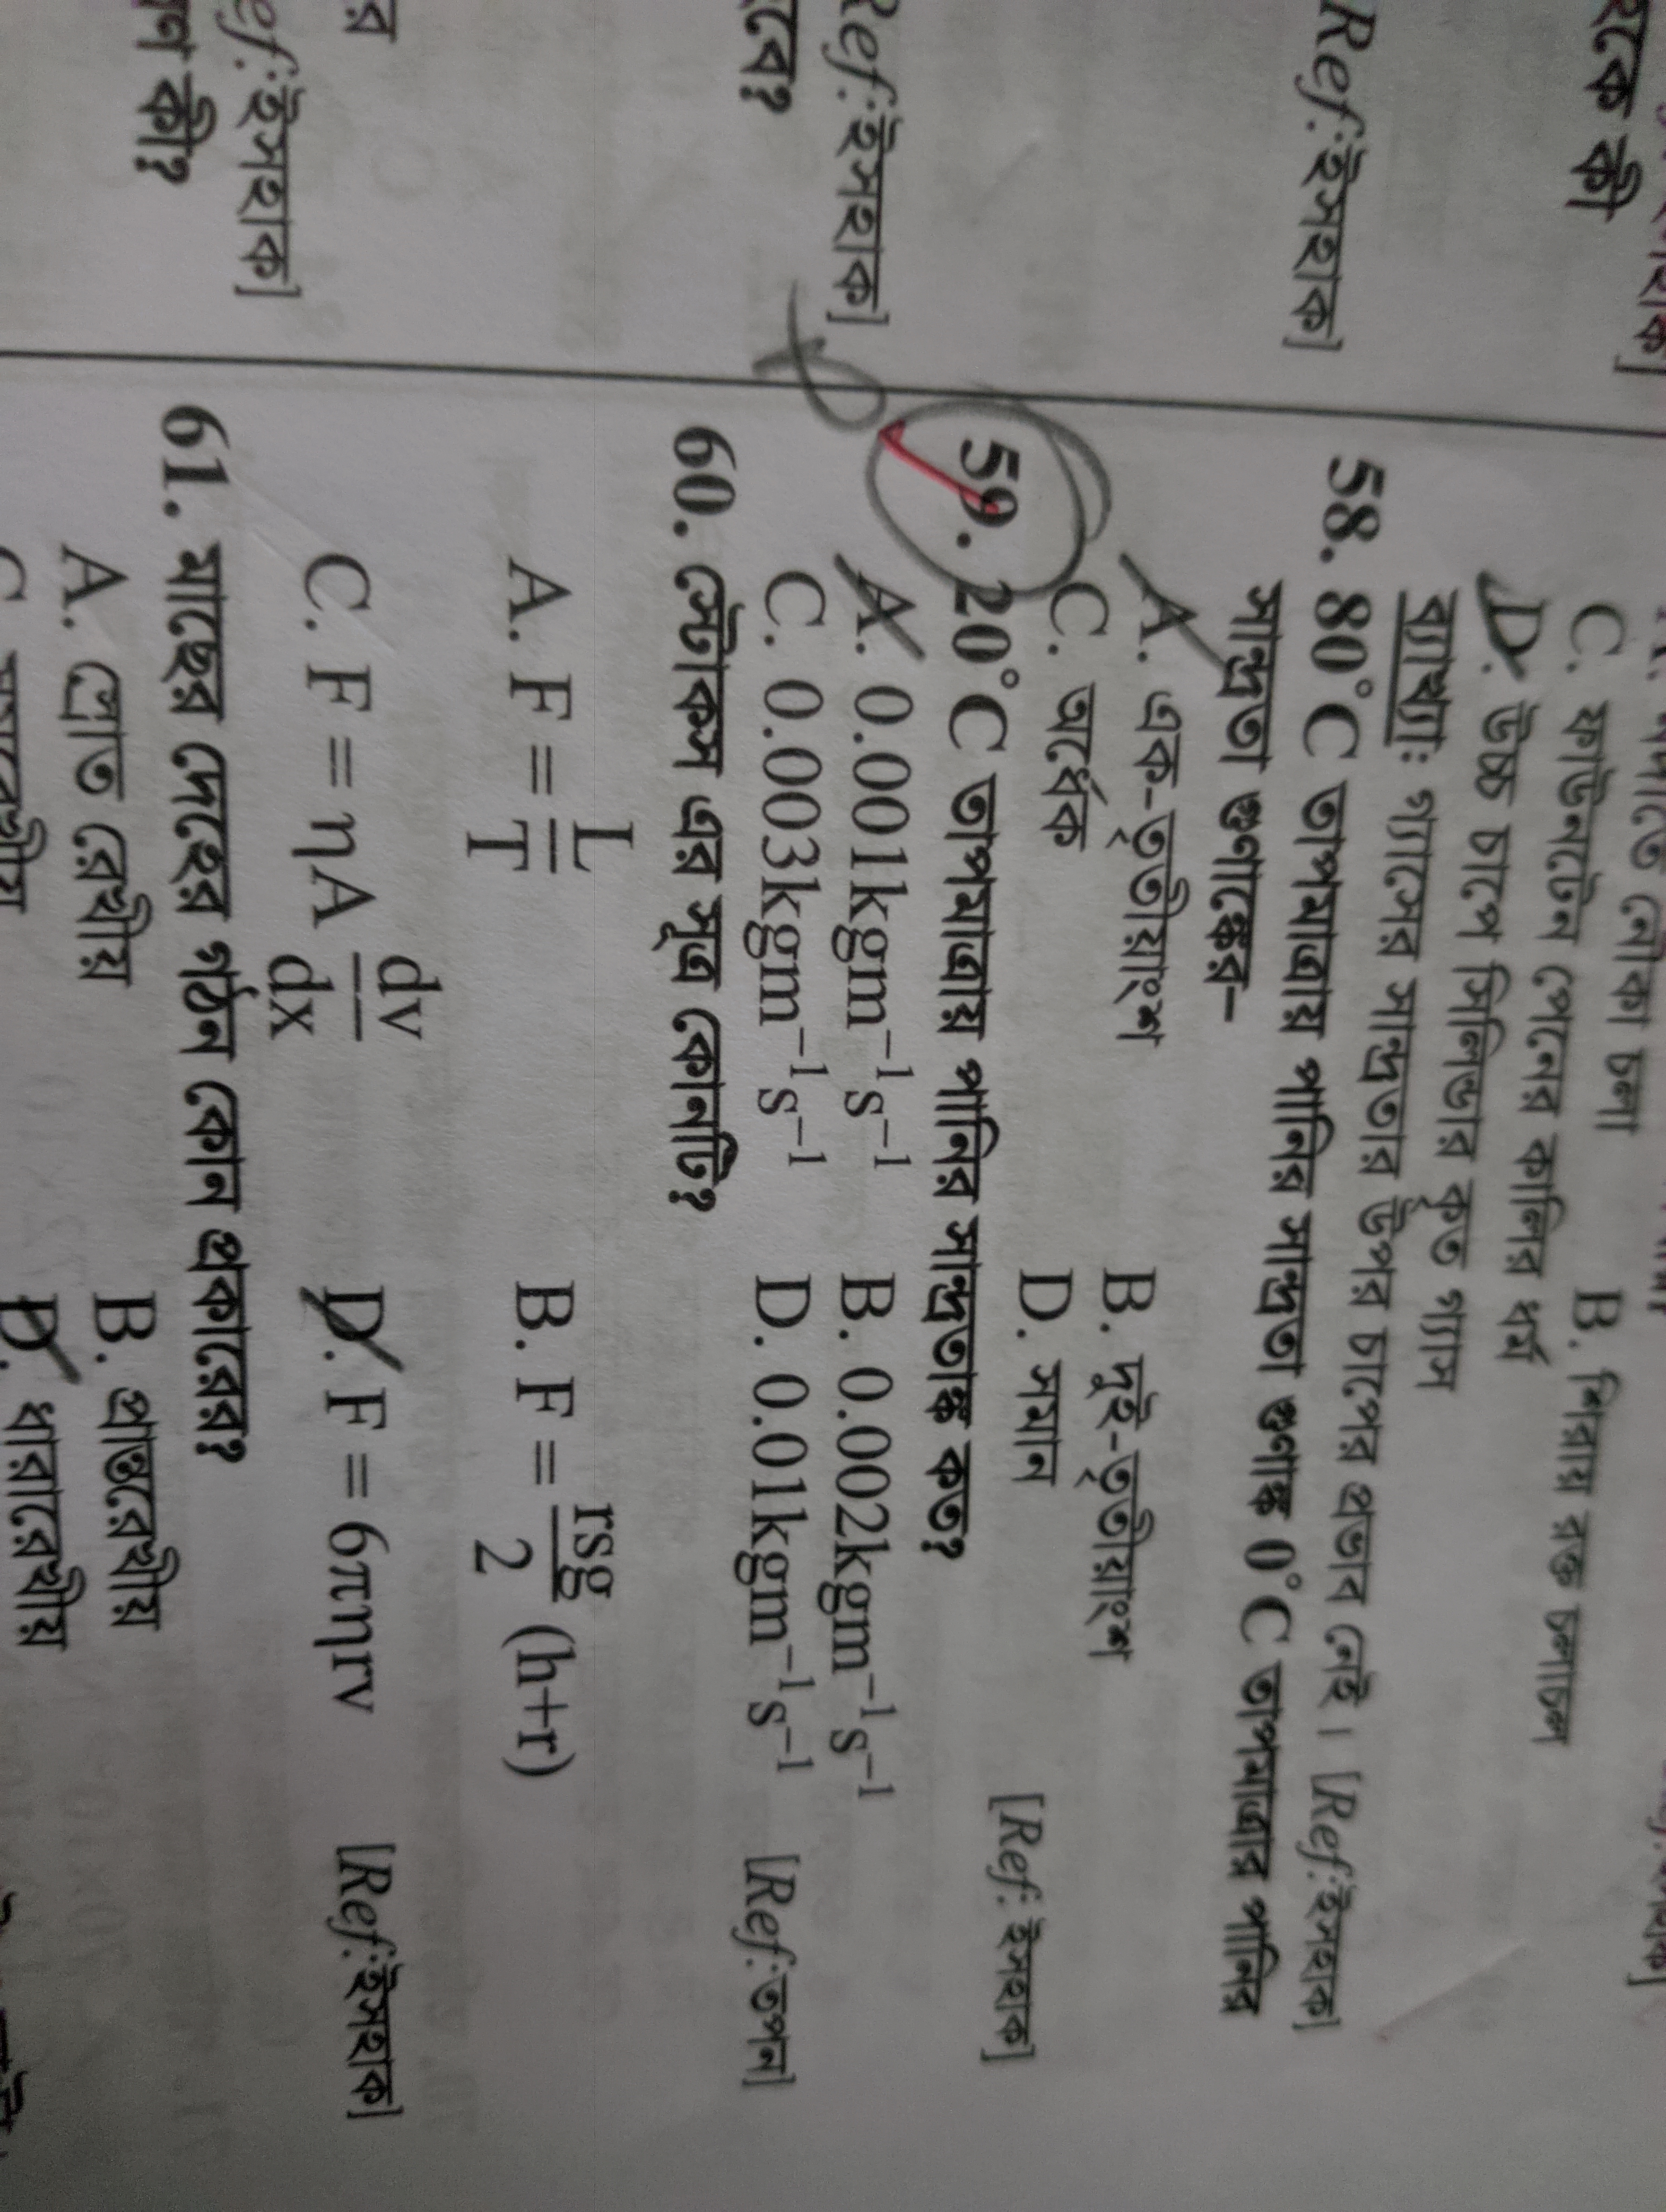 রকে কী
Ref:ইসহাক]
Ref:ইসহাক]
টবে?
র
ef:ইসহাক]
কী?
C. ফাউনটেন পেনের কালির ধর্ম
B. শিরায় রক্ত চলাচল
নৌকা চলা
D. উচ্চ চাপে সিলিন্ডার কৃত গ্যাস
ব্যাখ্যাঃ গ্যাসের সান্দ্রতার উপর চাপের প্রভাব নেই। [Ref:ইসহাক]
58. 80°C তাপমাত্রায় পানির সান্দ্রতা গুণাঙ্ক 0°C তাপমাত্রার পানির
সান্দ্রতা গুণাঙ্কের–
A. এক-তৃতীয়াংশ B. দুই-তৃতীয়াংশ
C. অর্ধেক D. সমান [Ref: ইসহাক]
59. 20°C তাপমাত্রায় পানির সান্দ্রতাঙ্ক কত?
A. 0.001kgm⁻¹s⁻¹ B. 0.002kgm⁻¹s⁻¹
C. 0.003kgm⁻¹s⁻¹ D. 0.01kgm⁻¹s⁻¹ [Ref:তপন]
60. স্টোকস এর সূত্র কোনটি?
A. F = L/T B. F = rsg/2 (h+r)
C. F = ηA dv/dx D. F = 6πηrv [Ref:ইসহাক]
61. মাছের দেহের গঠন কোন প্রকারের?
A. স্রোত রেখীয় B. প্রান্তরেখীয়
D. ধারারেখীয়